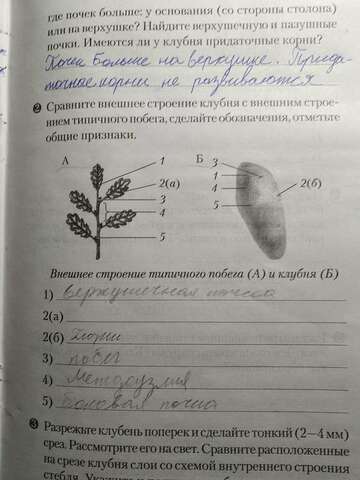 где почек больше: у основания (со стороны столона)
или на верхушке? Найдите верхушечную и пазушные
почки. Имеются ли у клубня придаточные корни?
Почек больше на верхушке. Прида-
точные корни не развиваются
2 Сравните внешнее строение клубня с внешним строе-
нием типичного побега, сделайте обозначения, отметьте
общие признаки.
А 1 Б 3
2(а) 1 2(б)
3 4
4 5
5
Внешнее строение типичного побега (А) и клубня (Б)
1) верхушечная почка
2(а)
2(б)
3) побег
4) Междоузлия
5) Боковая почка
3 Разрежьте клубень поперек и сделайте тонкий (2—4 мм)
срез. Рассмотрите его на свет. Сравните расположенные
на срезе клубня слои со схемой внутреннего строения